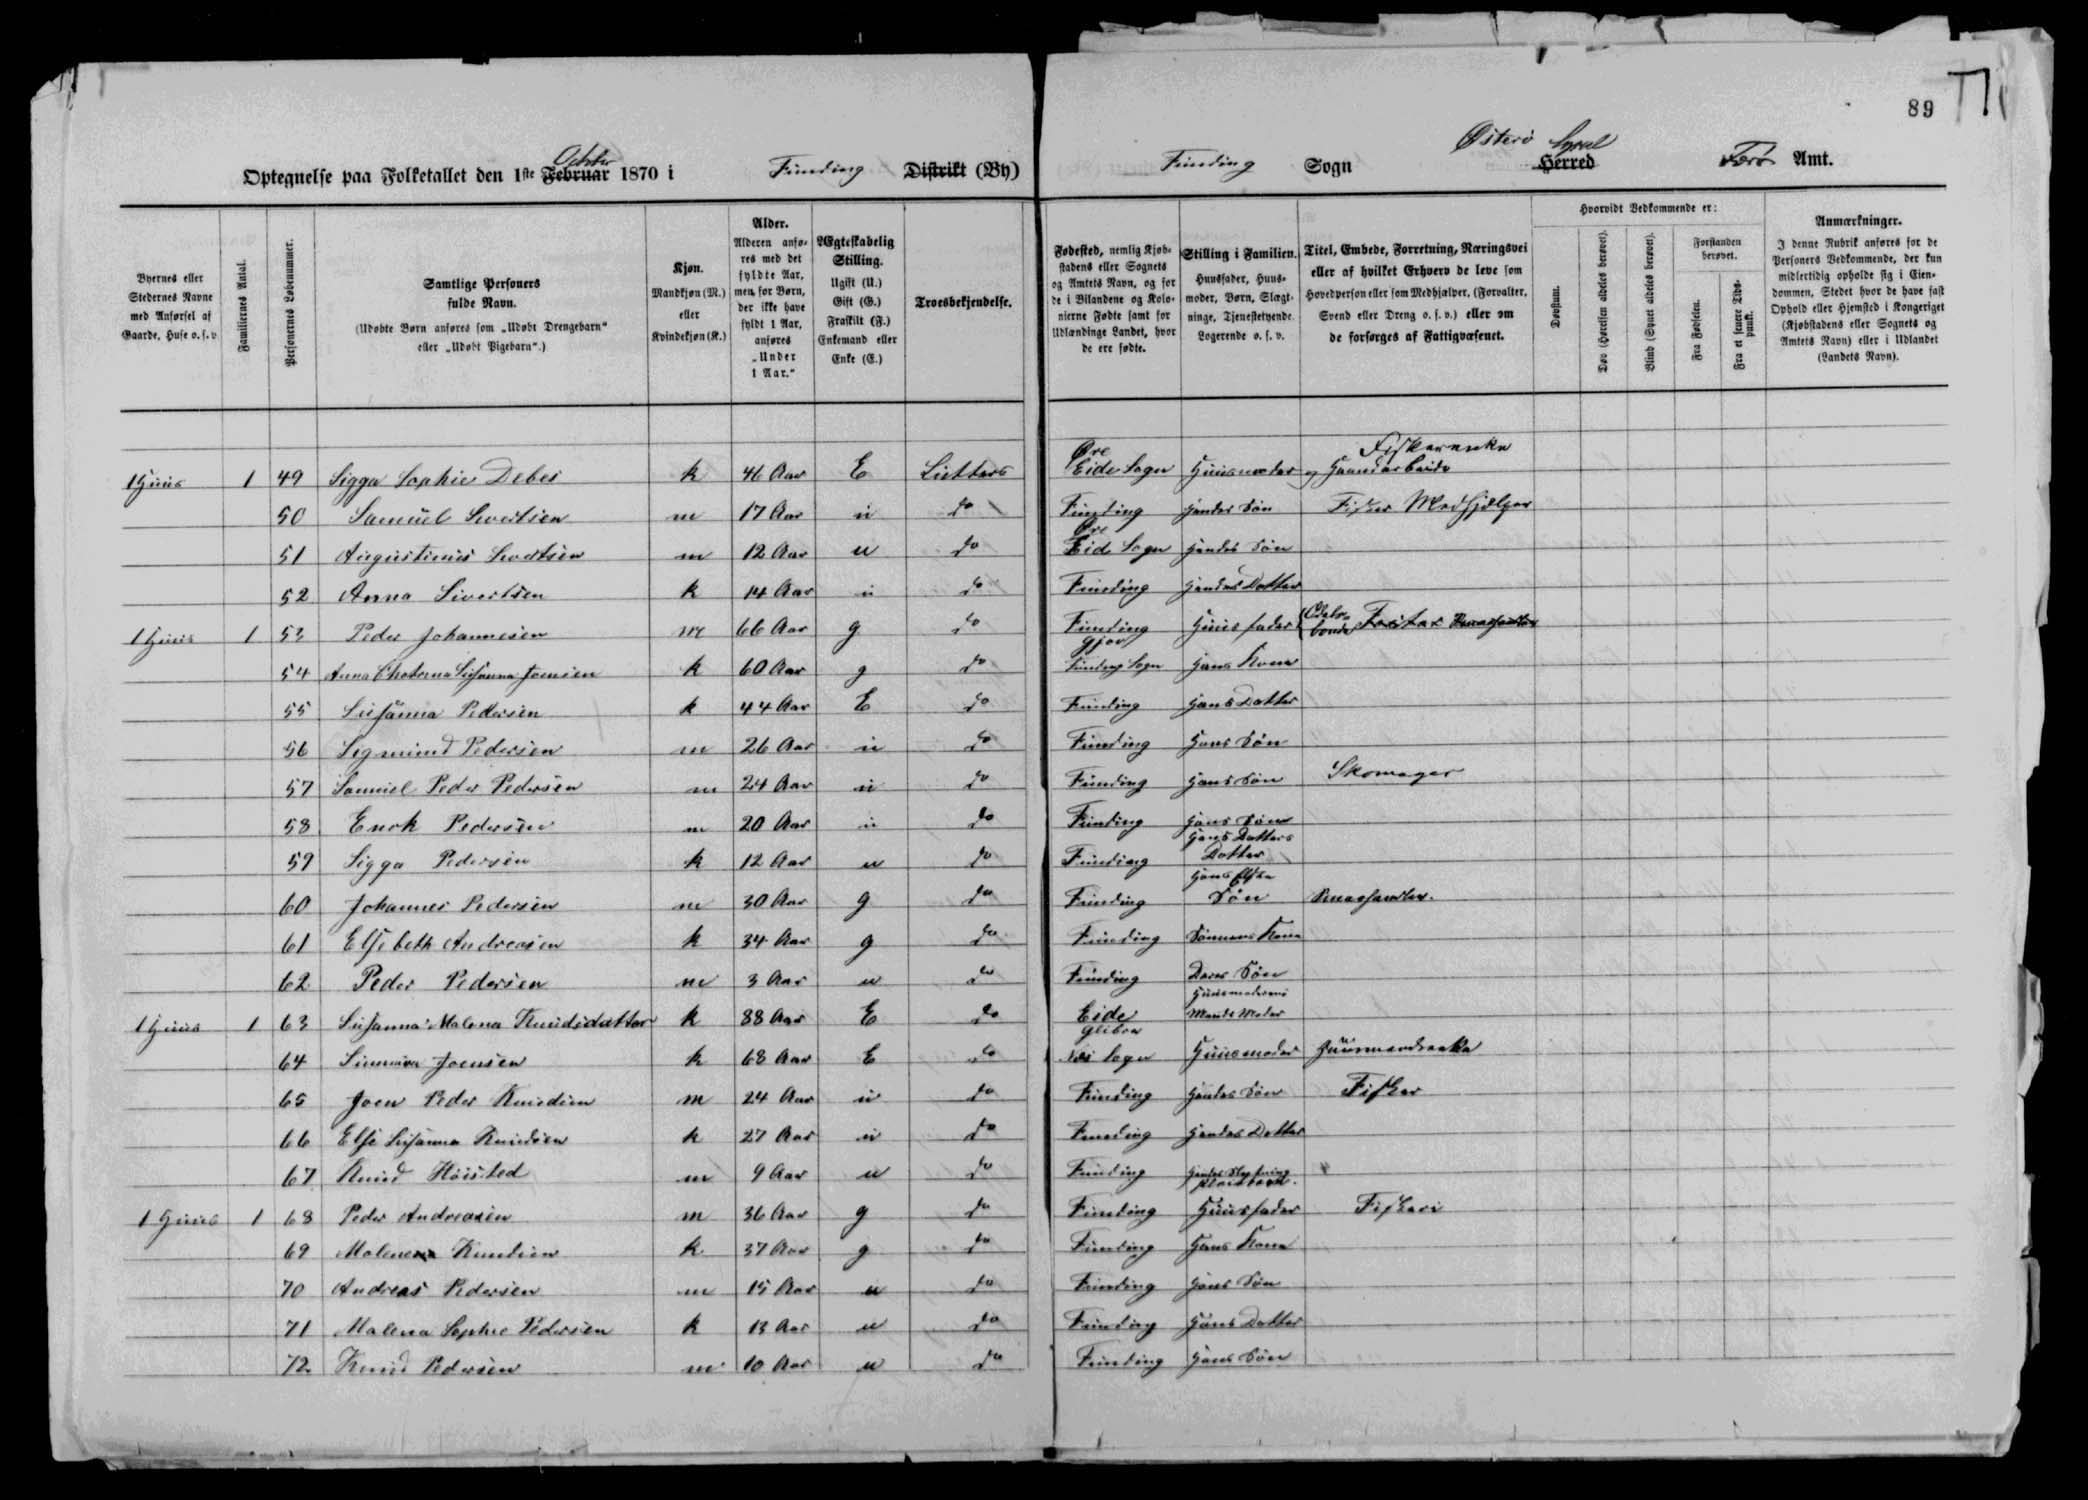 89
Optegnelse paa Folketallet den 1ste Februar Octbr 1870 i Funding Distrikt (By)
Funding Sogn Østerø Syssel Herred Færø Amt.
Byernes eller Stedernes Navne med Anførsel af Gaarde, Huse o. s. v.
Familiernes Antal.
Personernes Løbenummer.
Samtlige Personers fulde Navn. (Udøbte Børn anføres som „Udøbt Drengebarn“ eller „Udøbt Pigebarn“.)
Kjøn. Mandkjøn (M.) eller Kvindekjøn (K.)
Alder. Alderen anføres med det fyldte Aar, men for Børn, der ikke have fyldt 1 Aar, anføres „Under 1 Aar.“
Ægteskabelig Stilling. Ugift (U.) Gift (G.) Fraskilt (F.) Enkemand eller Enke (E.)
Troesbekjendelse.
Fødested, nemlig Kjøbstadens eller Sognets og Amtets Navn, og for de i Bilandene og Kolonierne Fødte samt for Udlændinge Landet, hvor de ere fødte.
Stilling i Familien. Huusfader, Huusmoder, Børn, Slægtninge, Tjenestetyende Logerende o. s. v.
Titel, Embede, Forretning, Næringsvei eller af hvilket Erhverv de leve som Hovedperson eller som Medhjælper, (Forvalter, Svend eller Dreng o. s. v.) eller om de forsørges af Fattigvæsenet.
Hvorvidt Vedkommende er:
Døvstum.
Døv (Hørelsen aldeles berøvet).
Blind (Synet aldeles berøvet).
Forstanden berøvet.
Fra Fødselen.
Fra et senere Tidspunkt.
Anmærkninger. I denne Rubrik anføres for de Personers Vedkommende, der kun midlertidig opholde sig i Eiendommen, Stedet hvor de have fast Ophold eller Hjemsted i Kongeriget (Kjøbstadens eller Sognets og Amtets Navn) eller i Udlandet (Landets Navn).
1 Huus 1 49 Sigga Sophie Debes k 46 Aar E Luthers Øre Eide Sogn Huusmoder Fiskerenke og Haandarbeide
50 Samuel Sivertsen m 17 Aar u do Funding hendes Søn Fisker Medhjelper
51 Augustinus Sivertsen m 12 Aar u do Øre Eide Sogn hendes Søn
52 Anna Sivertsen k 14 Aar u do Funding hendes Datter
1 Huus 1 53 Peder Johannesen m 66 Aar g do Funding Huusfader Odelsbonde
54 Anna Susanna Joensen k 60 Aar g do Gjov Fundings Sogn hans Kone
55 Susanna Pedersen k 44 Aar E do Funding hans Datter
56 Sigmund Pedersen m 26 Aar u do Funding hans Søn
57 Samuel Peder Pedersen m 24 Aar u do Funding hans Søn Skomager
58 Enok Pedersen m 20 Aar u do Funding hans Søn
59 Sigga Pedersen k 12 Aar u do Funding hans Datters Datter
60 Johannes Pedersen m 30 Aar g do Funding hans Søn
61 Elsebeth Andreasen k 34 Aar g do Funding Sønnens Kone
62 Peder Pedersen m 3 Aar u do Funding Deres Søn
1 Huus 1 63 Susanna Malena Knudsdatter k 88 Aar E do Eide Huusmoderens Mands Moder
64 Sunneva Joensen k 68 Aar E do Glibre Nes Sogn Huusmoder Huusmandsenke
65 Joen Peder Knudsen m 24 Aar u do Funding hendes Søn Fisker
66 Else Susanna Knudsen k 27 Aar u do Funding hendes Datter
67 Knud Høisted m 9 Aar u do Funding hendes Slegtning Pleiebarn.
1 Huus 1 68 Peder Andreasen m 36 Aar g do Funding Huusfader Fiskeri
69 Malena Knudsen k 37 Aar g do Funding hans Kone
70 Andreas Pedersen m 15 Aar u do Funding hans Søn
71 Malena Sophie Pedersen k 13 Aar u do Funding hans Datter
72 Knud Pedersen m 10 Aar u do Funding hans Søn